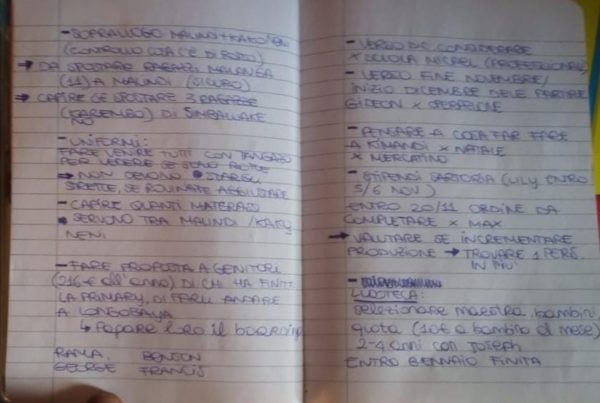 - SOPRALLUOGO MALINDI + KAKUYENI
(CONTROLLO COSA C'È DI POSTO)
→ DA SPOSTARE RAGAZZI MULUNGA
(11) A MALINDI (SICURO)
→ CAPIRE SE SPOSTARE 3 RAGAZZE
DI
- UNIFORMI:
FARE VENIRE TUTTI CON TANGAZO
PER VEDERE SE SONO ROTTE
→ NON DEVONO STARGLI
STRETTE, SE ROVINATE AGGIUSTARE
- CAPIRE QUANTI MATERASSI
SERVONO TRA MALINDI / KAKU
YENI
- FARE PROPOSTA A GENITORI
(216€ all'anno) DI CHI HA FINITO
LA PRIMARY, DI FARLI ANDARE
A LONGOBAYA
↳ Pagare loro il boarding
RAMA, BENSON
GEORGE FRANCIS
- VERSO DIC. CONSIDERARE
× SCUOLA (PROFESSIONALE)
- VERSO FINE NOVEMBRE/
INIZIO DICEMBRE DEVE PARTIRE
GIDEON × OPERAZIONE
- PENSARE A COSA FAR FARE
A KIMANDI × NATALE
× MERCATINO
- STIPENDI SARTORIA (LILY ENTRO
5/6 NOV)
ENTRO 20/11 ORDINE DA
COMPLETARE × MAX
→ VALUTARE SE INCREMENTARE
PRODUZIONE → TROVARE 1 PERS.
IN PIÙ
LUDOTECA:
selezionare maestra, bambini
quota (10€ a bambino al mese)
2-4 anni con JOSEPH
ENTRO GENNAIO FINITA